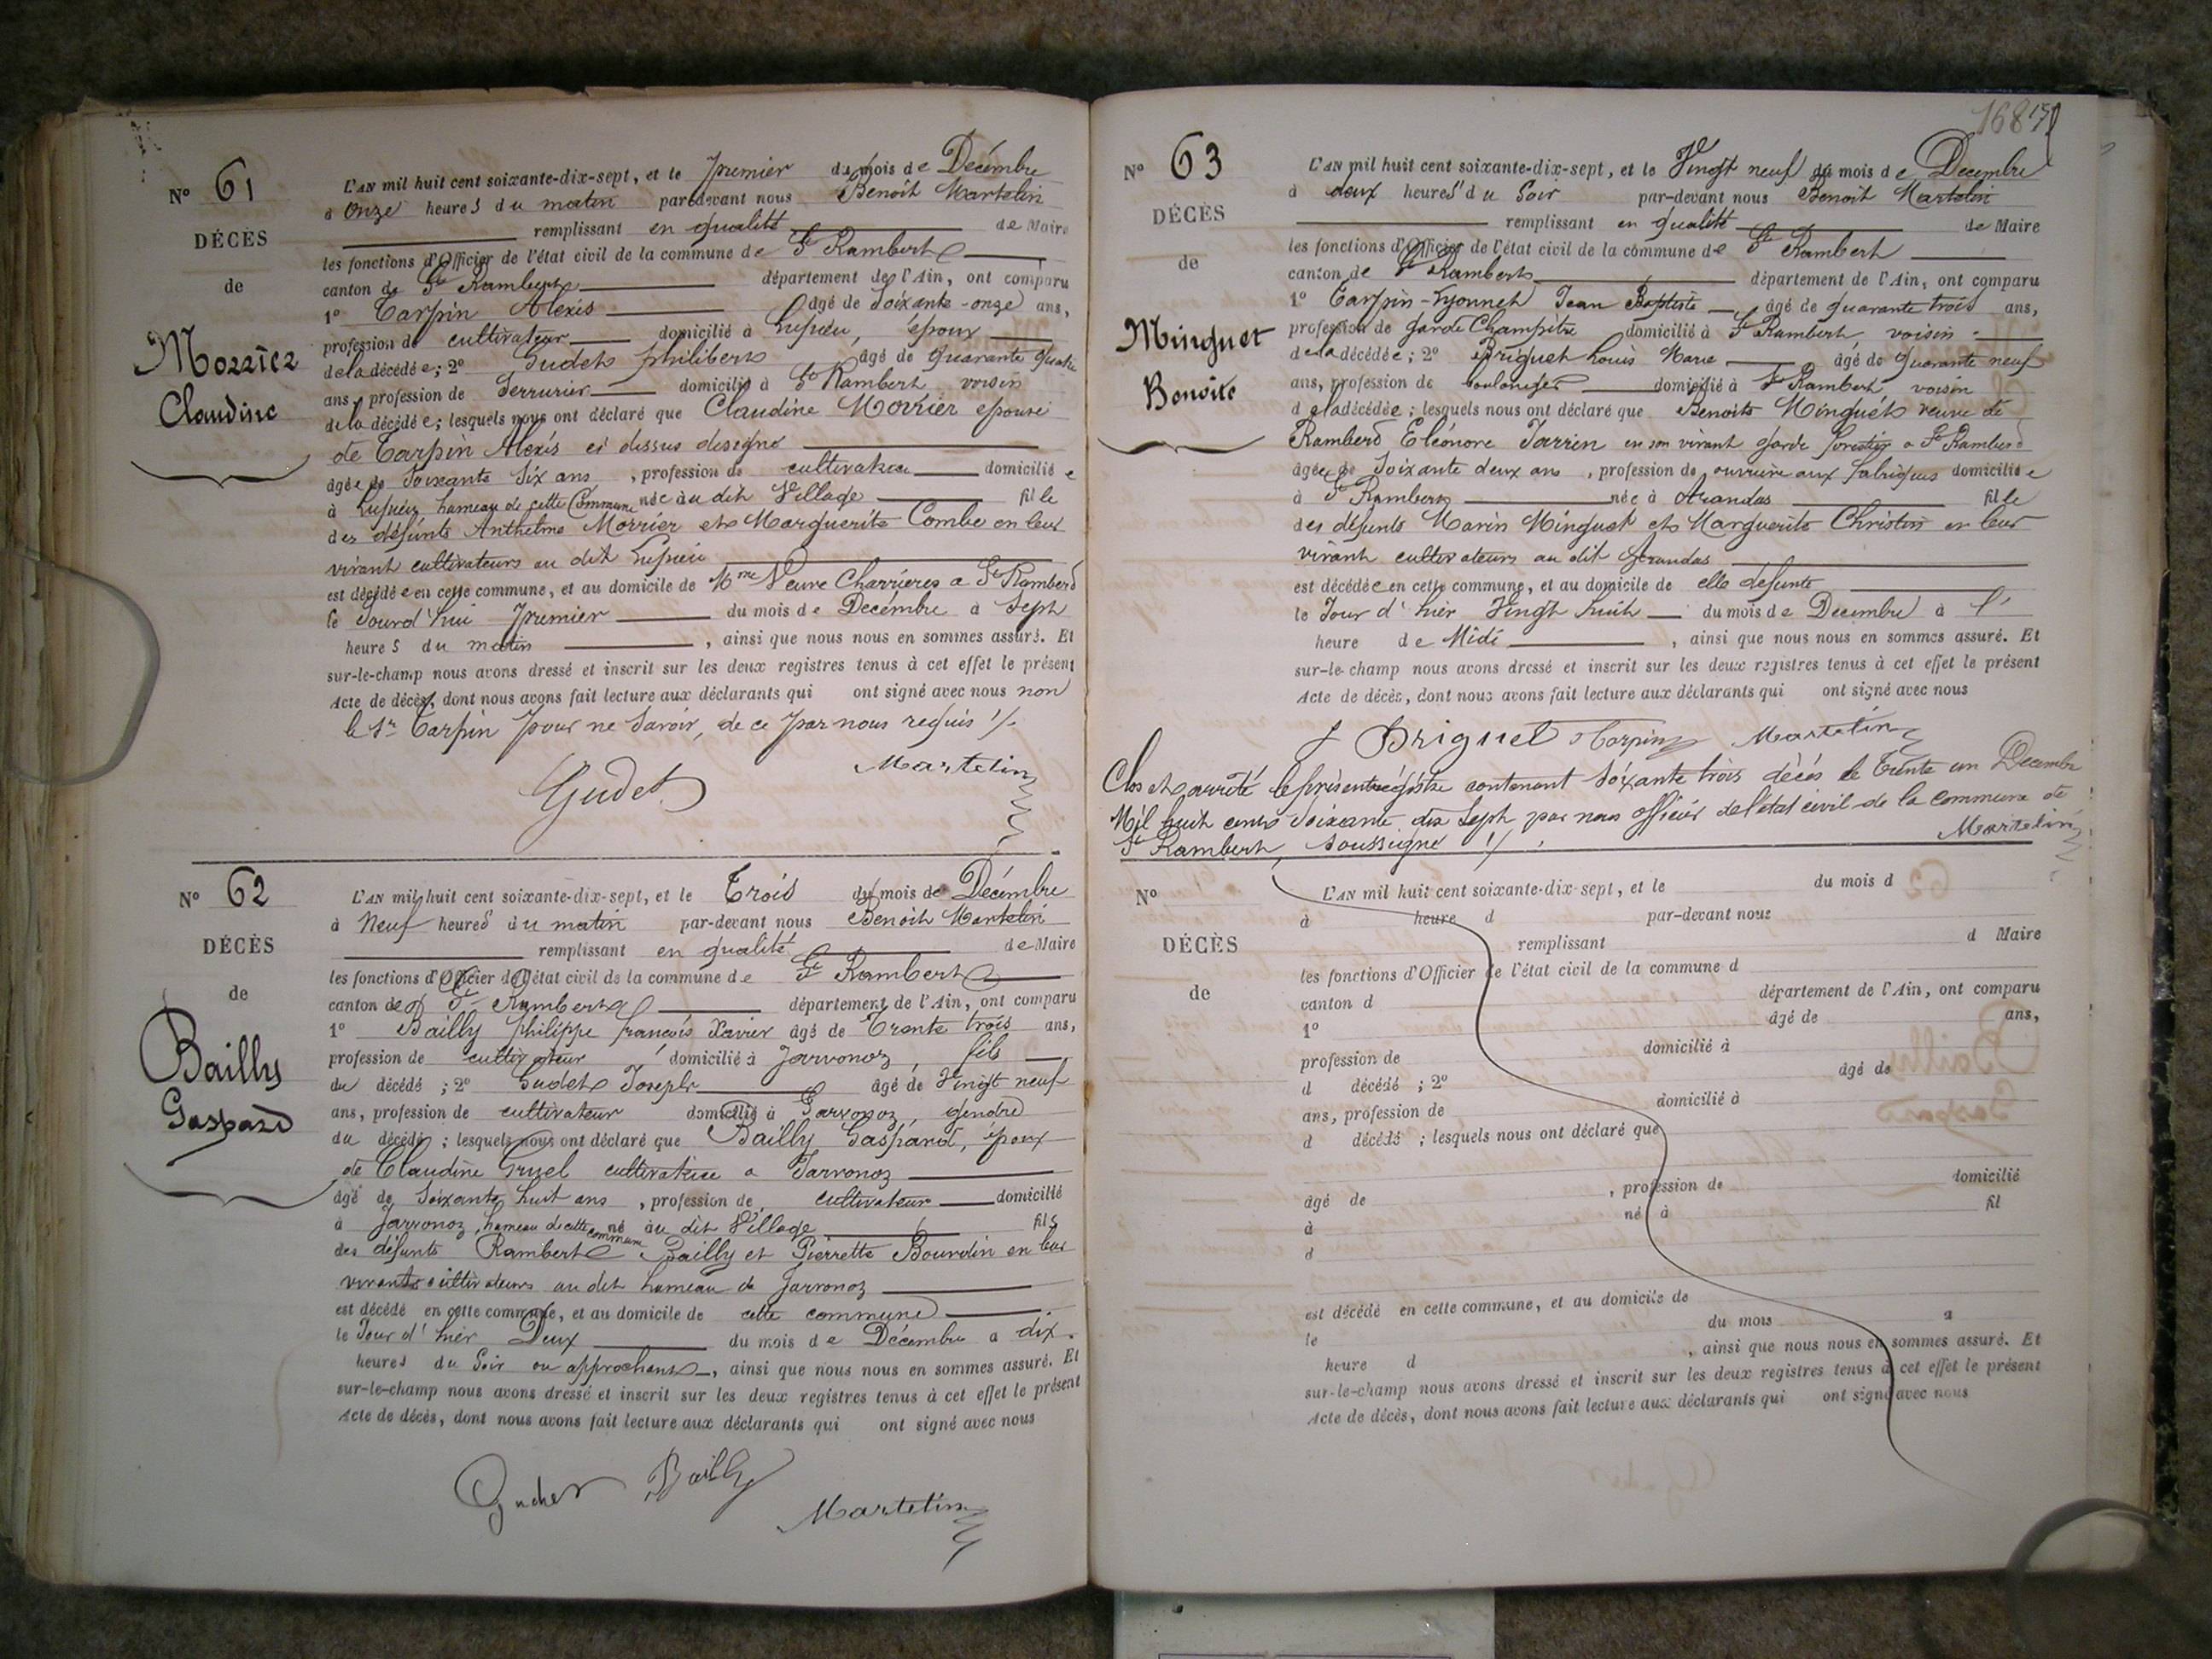 Nº 61
DÉCÈS
de
Morrier
Claudine
L'AN mil huit cent soixante-dix-sept, et le premier du mois de Décembre
à onze heures du matin par-devant nous Benoit Martelin
remplissant en qualité de Maire
les fonctions d'Officier de l'état civil de la commune de St Rambert
canton de St Rambert département de l'Ain, ont comparu
1º Carpin Alexis âgé de soixante-onze ans,
profession de cultivateur domicilié à Lupieu, époux
de la décédée; 2º Gudet philibert âgé de quarante quatre
ans, profession de Serrurier domicilié à St Rambert voisin
de la décédée; lesquels nous ont déclaré que Claudine Morrier epouse
de Carpin Alexis ci dessus designé
âgée de soixante six ans, profession de cultivatrice domiciliée
à Lupieu hameau de cette Commune née au dit Village fille
des défunts Anthelme Morrier et Marguerite Combe en leur
vivant cultivateurs au dit Lupieu
est décédée en cette commune, et au domicile de Mme Veuve Charrieres a St Rambert
le Jourd'hui premier du mois de Decembre à Sept
heures du matin, ainsi que nous nous en sommes assuré. Et
sur-le-champ nous avons dressé et inscrit sur les deux registres tenus à cet effet le présent
Acte de décès, dont nous avons fait lecture aux déclarants qui ont signé avec nous non
le 1r Carpin pour ne savoir, de ce par nous requis ./.
Gudet Martelin
Nº 62
DÉCÈS
de
Bailly
Gaspard
L'AN mil huit cent soixante-dix-sept, et le Trois du mois de Décembre
à Neuf heures du matin par-devant nous Benoit Martelin
remplissant en qualité de Maire
les fonctions d'Officier de l'état civil de la commune de St Rambert
canton de St Rambert département de l'Ain, ont comparu
1º Bailly philippe françois Xavier âgé de Trente trois ans,
profession de cultivateur domicilié à Javornoz, fils
du décédé; 2º Gudet Joseph âgé de Vingt neuf
ans, profession de cultivateur domicilié à Javornoz, gendre
du décédé; lesquels nous ont déclaré que Bailly Gaspard, époux
de Claudine Gruel cultivatrice a Javornoz
âgé de soixante huit ans, profession de cultivateur domicilié
à Javornoz, hameau de cette commune né au dit Village fils
des défunts Rambert Bailly et Pierrette Bourdin en leur
vivants cultivateurs au dit hameau de Javornoz
est décédé en cette commune, et au domicile de cette commune
le Jour d'hier Deux du mois de Décembre a dix
heures du Soir ou approchant, ainsi que nous nous en sommes assuré. Et
sur-le-champ nous avons dressé et inscrit sur les deux registres tenus à cet effet le présent
Acte de décès, dont nous avons fait lecture aux déclarants qui ont signé avec nous
Gudet Bailly
Martelin
168
Nº 63
DÉCÈS
de
Minguet
Benoite
L'AN mil huit cent soixante-dix-sept, et le Vingt neuf du mois de Decembre
à deux heures du Soir par-devant nous Benoit Martelin
remplissant en qualité de Maire
les fonctions d'Officier de l'état civil de la commune de St Rambert
canton de St Rambert département de l'Ain, ont comparu
1º Carpin-Lyonnet Jean Baptiste âgé de quarante trois ans,
profession de garde Champêtre domicilié à St Rambert, voisin
de la décédée; 2º Briguet Louis Marie âgé de quarante neuf
ans, profession de boulanger domicilié à St Rambert voisin
de la décédée; lesquels nous ont déclaré que Benoite Minguet veuve de
Rambert Eléonore Jarrin en son vivant garde forestier a St Rambert
âgée de soixante deux ans, profession de ouvrière aux fabriques domiciliée
à St Rambert née à Arandas fille
des défunts Marin Minguet et Marguerite Christin en leur
vivant cultivateurs au dit Arandas
est décédée en cette commune, et au domicile de elle défunte
le Jour d'hier Vingt huit du mois de Decembre à l'
heure de Midi, ainsi que nous nous en sommes assuré. Et
sur-le-champ nous avons dressé et inscrit sur les deux registres tenus à cet effet le présent
Acte de décès, dont nous avons fait lecture aux déclarants qui ont signé avec nous
Briguet Carpin Martelin
Clos et arrêté le présent régistre contenant soixante trois décés le Trente un Decembre
Mil huit cent Soixante dix Sept par nous officier de l'état civil de la Commune de
St Rambert, soussigné ./. Martelin
Nº
DÉCÈS
de
L'AN mil huit cent soixante-dix-sept, et le du mois d
à heure d par-devant nous
remplissant d Maire
les fonctions d'Officier de l'état civil de la commune d
canton d département de l'Ain, ont comparu
1º âgé de ans,
profession de domicilié à
d décédé ; 2º âgé de
ans, profession de domicilié à
d décédé ; lesquels nous ont déclaré que
âgé de , profession de domicilié
à né à fil
d
est décédé en cette commune, et au domicile de
le du mois a
heure d , ainsi que nous nous en sommes assuré. Et
sur-le-champ nous avons dressé et inscrit sur les deux registres tenus à cet effet le présent
Acte de décès, dont nous avons fait lecture aux déclarants qui ont signé avec nous